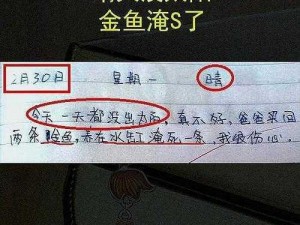 金鱼淹S了
2月30日 星期一 晴
今天一天都没出太阳，真不好，爸爸买回
两条鲸鱼，养在水缸淹死一条，我很伤心。